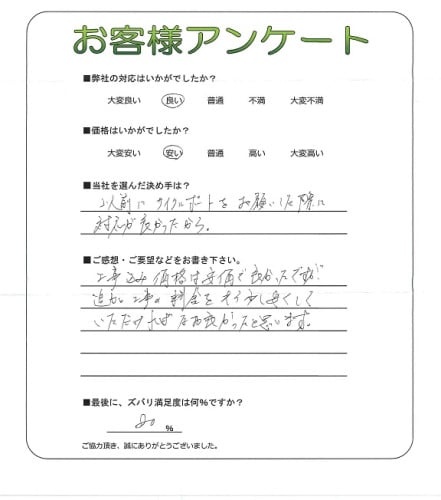 お客様アンケート
■弊社の対応はいかがでしたか?
大変良い 良い 普通 不満 大変不満
■価格はいかがでしたか?
大変安い 安い 普通 高い 大変高い
■当社を選んだ決め手は?
以前にサイクルポートをお願いした際に
対応が良かったから。
■ご感想・ご要望などをお書き下さい。
工事込み価格は安価で良かったですが
追加工事の料金をもう少し安くして
いただければ尚良かったと思います。
■最後に、ズバリ満足度は何%ですか?
80 %
ご協力頂き、誠にありがとうございました。